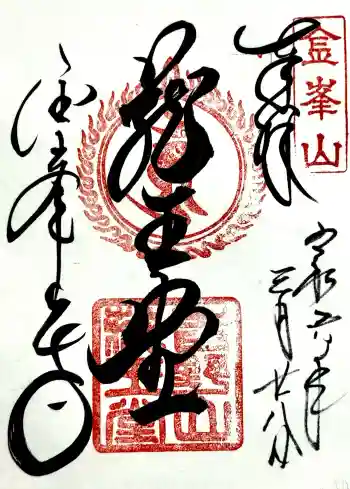 金峯山
奉拝
令和六年
三月廿八日
蔵王堂
金峯山寺